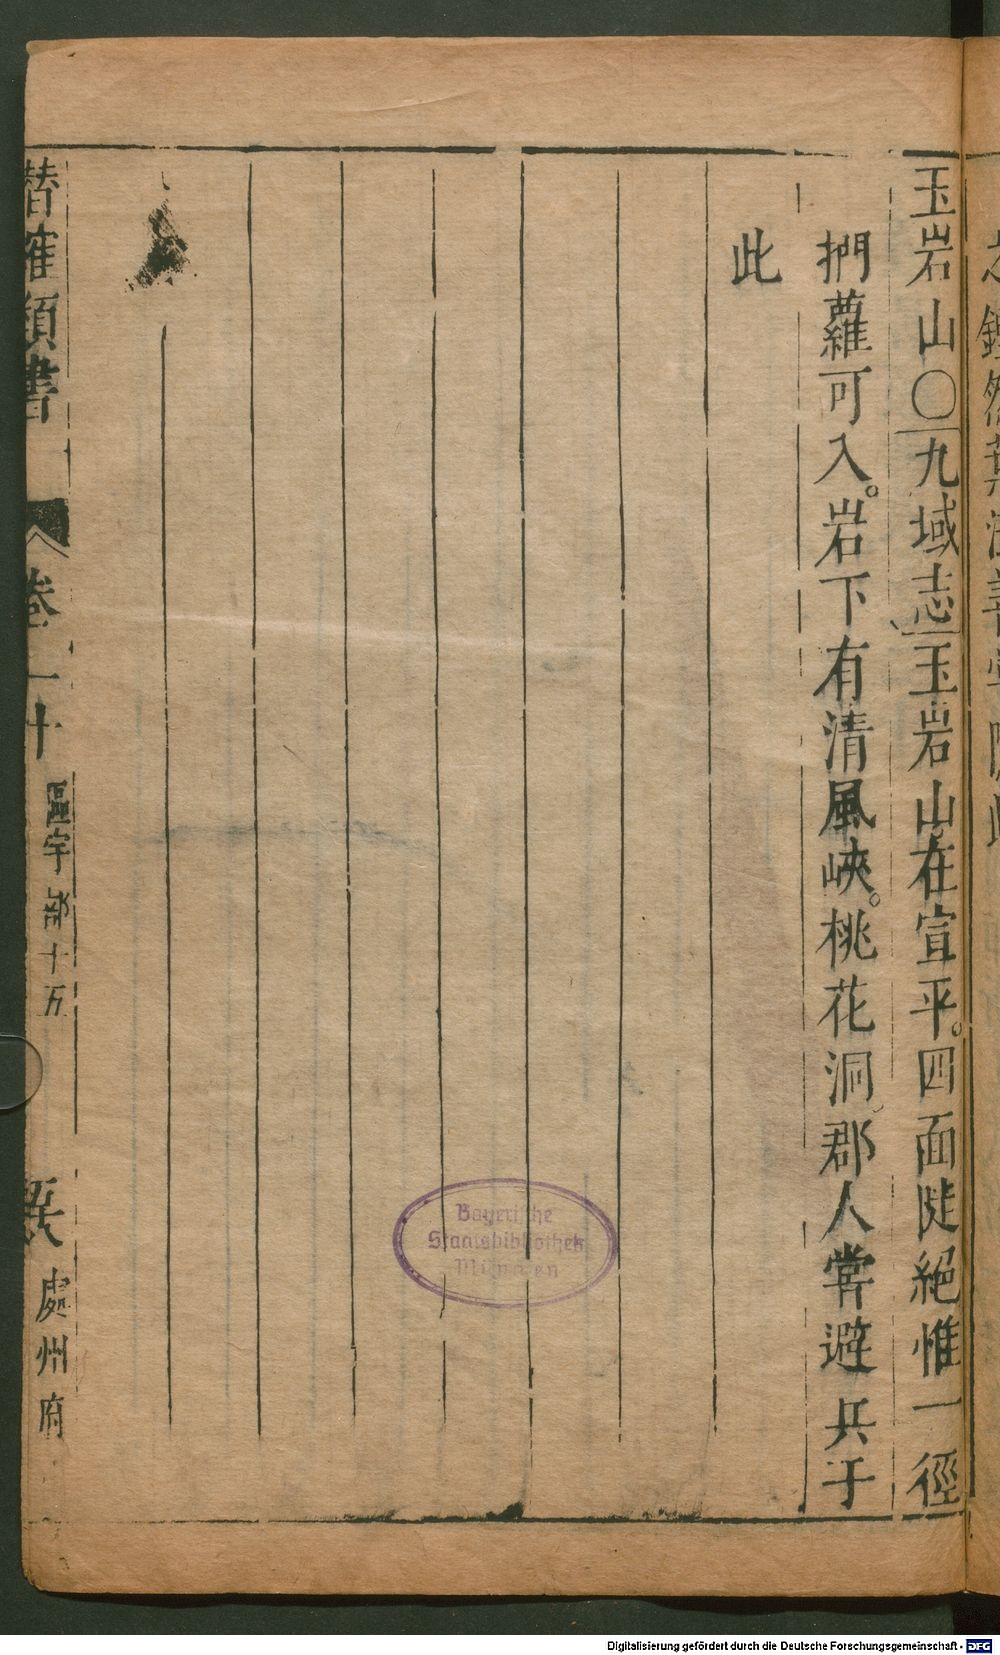 玉岩山〇九域志玉岩山在宣平。四面陡絕惟一徑
捫蘿可入。岩下有清風峽。桃花洞郡人嘗避兵于
此
潛確類書
卷二十
區宇部十五
處州府
Bayerische
Staatsbibliothek
München
Digitalisierung gefördert durch die Deutsche Forschungsgemeinschaft - DFG